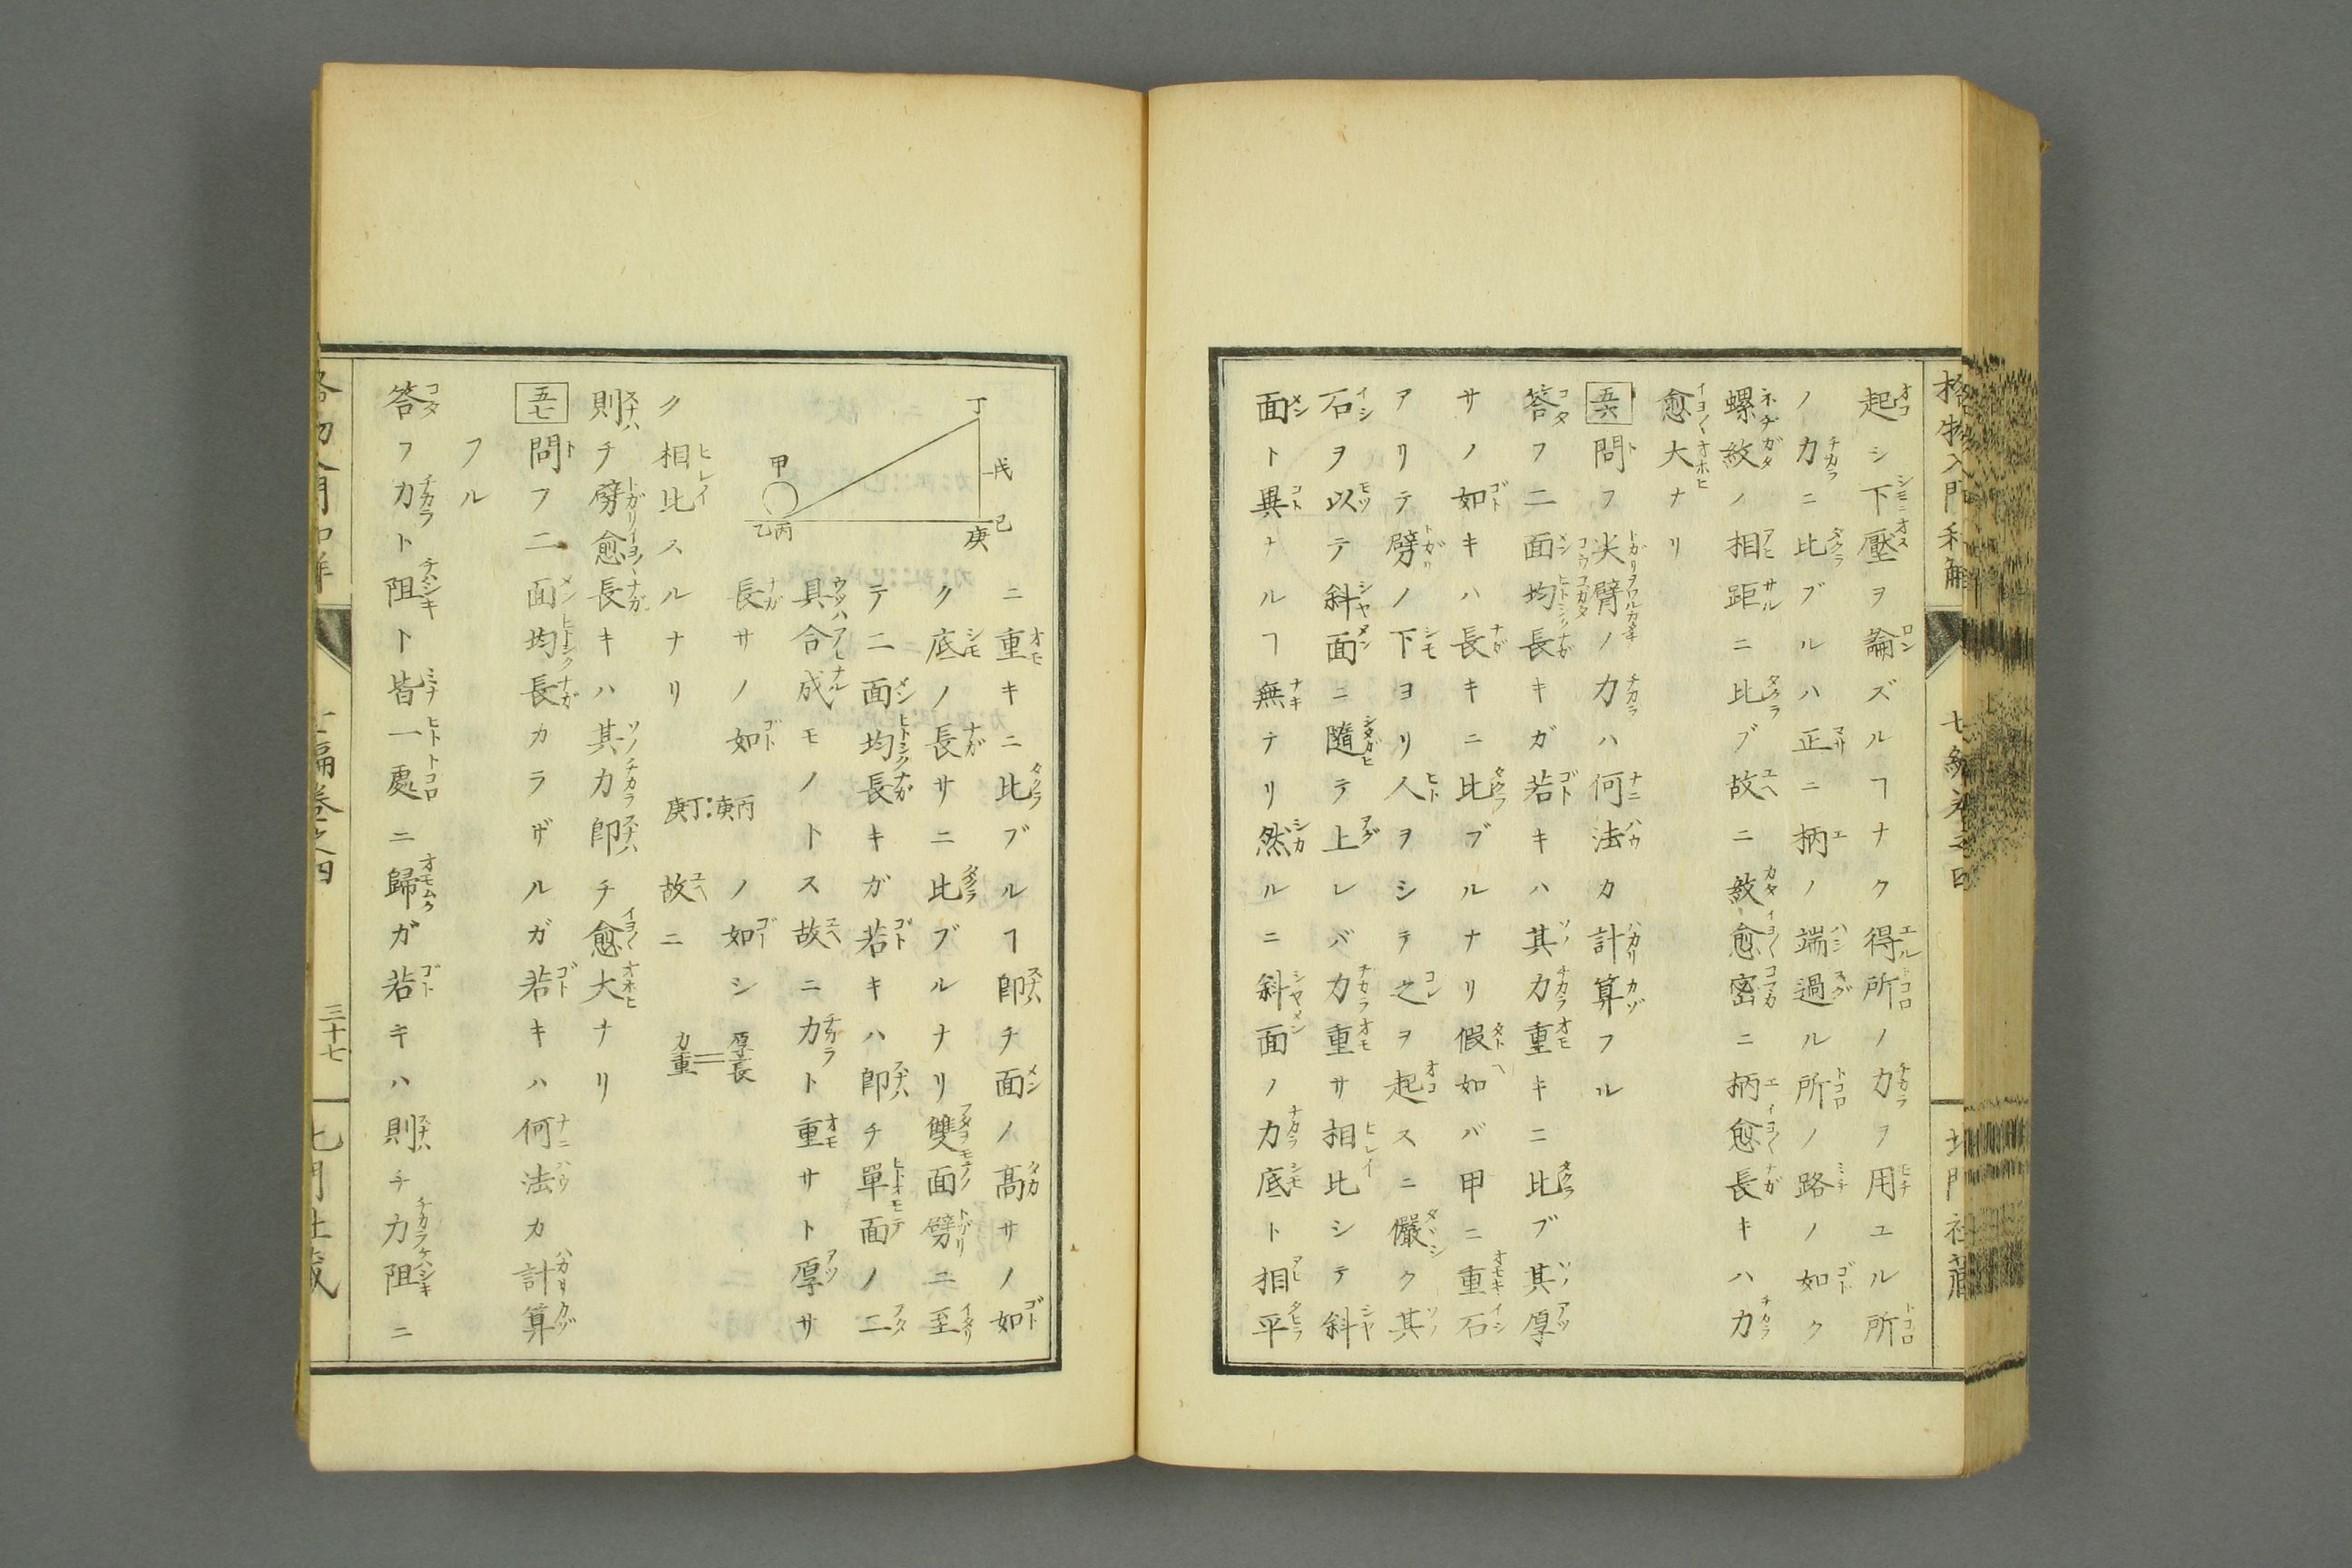 格物入門和解
七編卷之四
起シ下壓ヲ論ズルヿナク得所ノ力ヲ用ユル所
ノ力ニ比ブルハ正ニ柄ノ端過ル所ノ路ノ如ク
螺紋ノ相距ニ比ブ故ニ紋愈密ニ柄愈長キハ力
愈大ナリ
五六 問フ尖劈ノ力ハ何法カ計算フル
答フ二面均長キガ若キハ其力重キニ比ブ其厚
サノ如キハ長キニ比ブルナリ假如バ甲ニ重石
アリテ劈ノ下ヨリ人ヲシテ之ヲ起スニ儼ク其
石ヲ以テ斜面ニ隨テ上レバ力重サ相比シテ斜
面ト異ナルヿ無テリ然ルニ斜面ノ力底ト相平
丁
戊
己
庚
甲
乙丙
ニ重キニ比ブルヿ即チ面ノ髙サノ如
ク底ノ長サニ比ブルナリ雙面劈ニ至
テ二面均長キガ若キハ即チ單面ノ二
具合成モノトス故ニ力ト重サト厚サ
長サノ如 丙庚:丁庚 ノ如シ 厚長=力重
ク相比スルナリ 故ニ
則チ劈愈長キハ其力即チ愈大ナリ
五七 問フ二面均長カラザルガ若キハ何法カ計算
フル
答フ力ト阻ト皆一處ニ歸ガ若キハ則チ力阻ニ
三十七